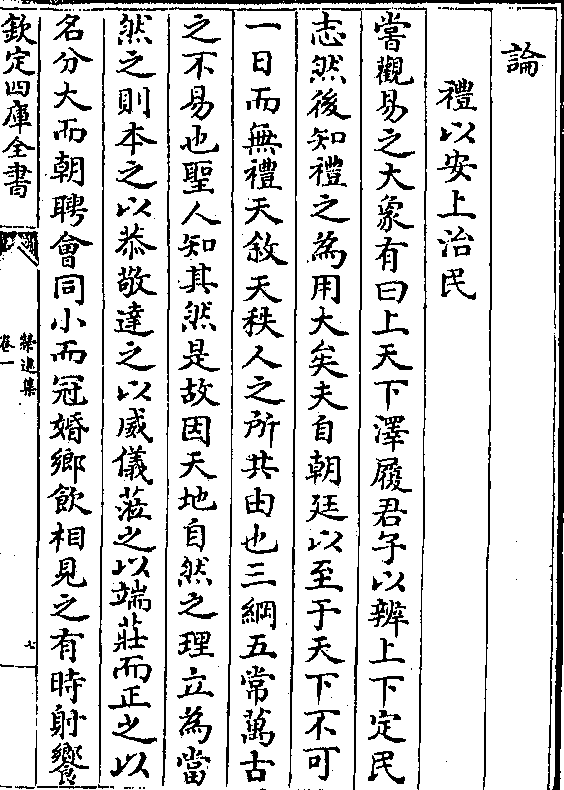 論
禮以安上治民
嘗觀易之大象有曰上天下澤履君子以辨上下定民
志然後知禮之為用大矣夫自朝廷以至于天下不可
一日而無禮天敘天秩人之所共由也三綱五常萬古
之不易也聖人知其然是故因天地自然之理立為當
然之則本之以恭敬達之以威儀蒞之以端莊而正之以
名分大而朝聘會同小而冠婚鄉飲相見之有時射饗
欽定四庫全書
槩進集
卷一
七